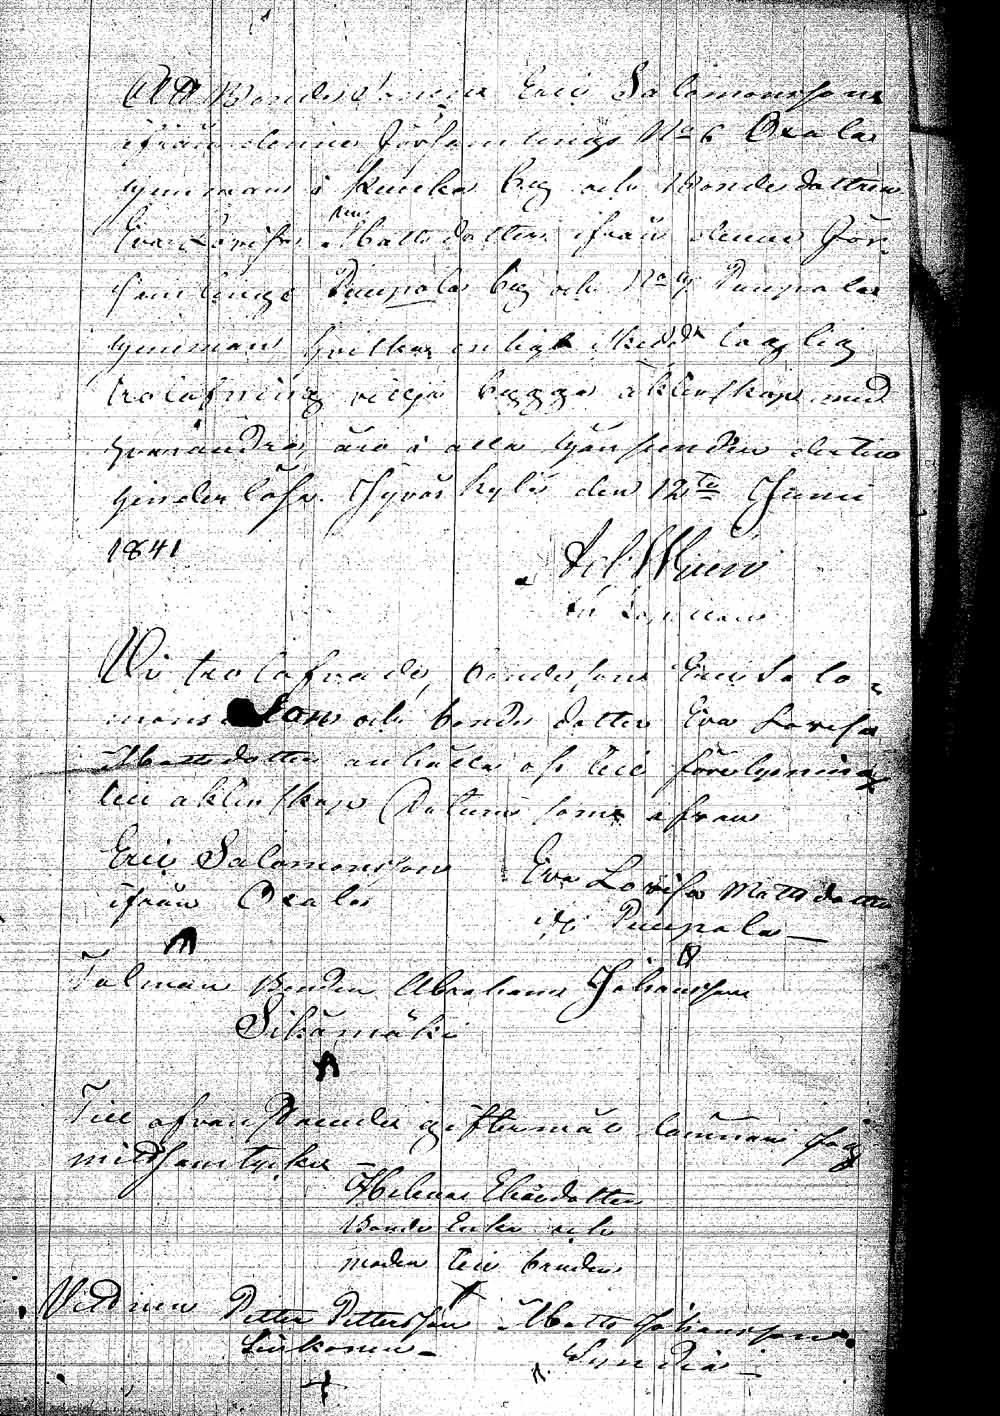 Att Bonde Sonen Eric Salomonsson
ifrån denne Församlings No 6 Oxala
hemman i Keuka by och Bonde dottren
Eva Lovisa Matts dotter ifrån denne För-
samlings Puupala by och No Puupala
hemman, hvilka enligt skedd laglig
trolofning vilja bygga äktenskap med
hvarandra, äro i alla hänseenden dertill
hinderlöse. Jyväskylä den 12te Junii
1841
Vi trolofvade, bondesonen Eric Salo-
mons son och bonde dotter Eva Lovisa
Mattsdotter anhålla os till förelysning
till äktenskap Datum som ofvan
Eric Salomonsson
ifrån Oxala
Eva Lovisa Matts dotter
Puupala
Talman Bonden Abraham Johansson
Sikamäki
Till ofvanstående giftermål lämnar jag
mitt samtycke
Helena Eliædotter
Bonde Enka och
moder till bruden
Vittnen Petter Pettersson Matts Johansson